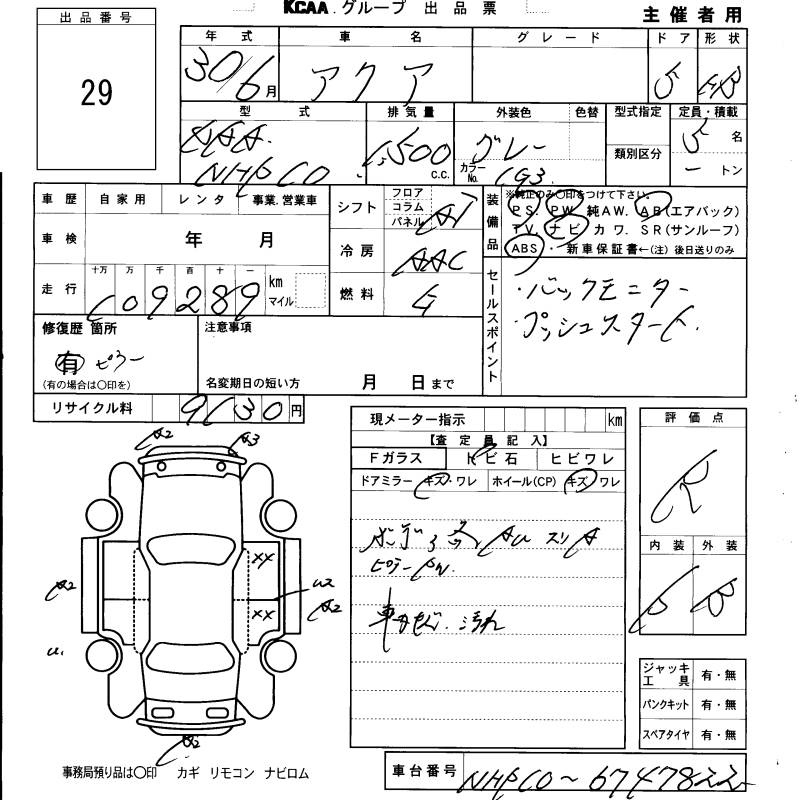 KCAA グループ 出品票
主催者用
出品番号
29
年式 車名 グレード ドア 形状
30/6月 アクア 5 HB
型式 排気量 外装色 色替 型式指定 定員・積載
DAA 1500 c.c. グレー 5名
NHP10 カラーNo. 1G3 類別区分 ートン
車歴 自家用 レンタ 事業.営業車
シフト フロア コラム パネル AT
装備品 ※純正のみ○印をつけて下さい。
PS. PW. 純AW. AB(エアバック)
TV. ナビ カワ. SR(サンルーフ)
ABS・ 新車保証書←(注)後日送りのみ
車検 年 月
冷房 AAC
走行 十万 万 千 百 十 一 km マイル
109289
燃料 G
セールスポイント
・バックモニター
・プッシュスタート.
修復歴 箇所
有 ピラー
(有の場合は○印を)
注意事項
名変期日の短い方 月 日まで
リサイクル料 9130円
現メーター指示 km
【査定員記入】
Fガラス トビ石 ヒビワレ
ドアミラー キズ・ワレ ホイール(CP) キズ・ワレ
評価点
R
内装 外装
B
A2
A3
XX
A2
U2
XX
A2
U1
A2
ピラー
車内 汚れ
ジャッキ工具 有・無
パンクキット 有・無
スペアタイヤ 有・無
事務局預り品は○印 カギ リモコン ナビロム
車台番号 NHP10〜6747822